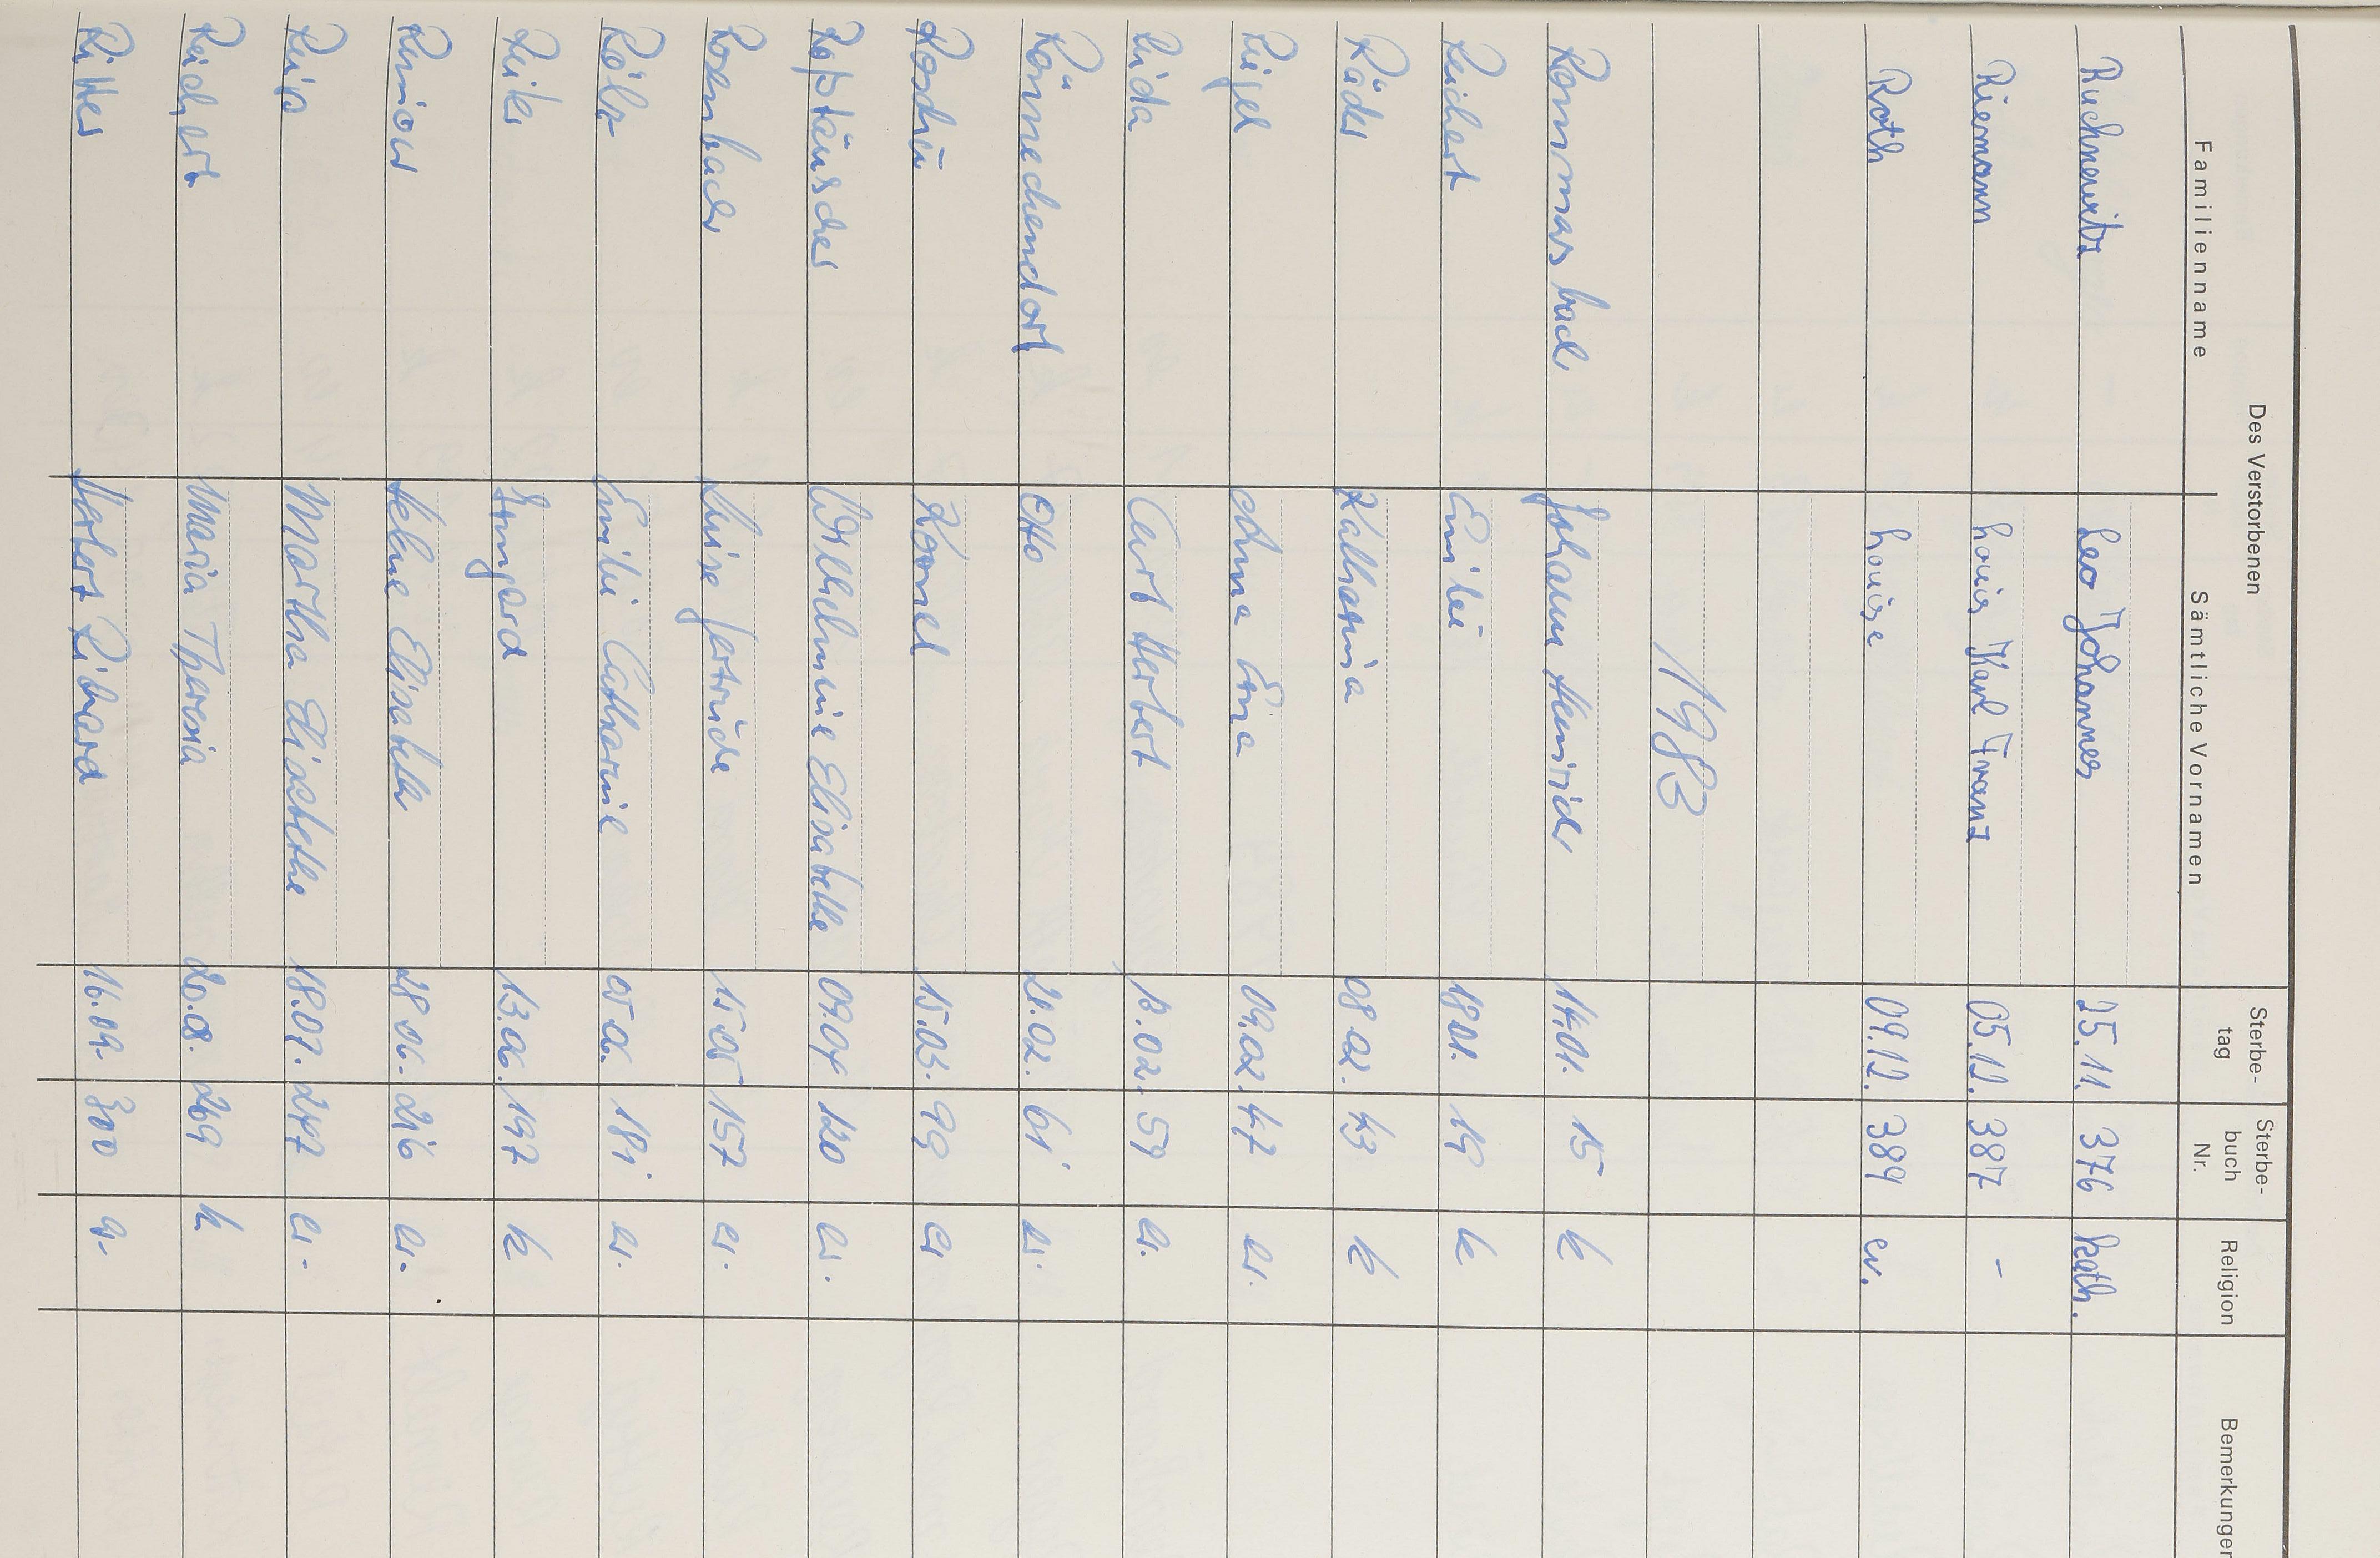 Des Verstorbenen
Familienname Sämtliche Vornamen Sterbe-tag Sterbe-buch Nr. Religion Bemerkungen
Ruchnewitz Leo Johannes 25.11. 376 kath.
Riemann Louis Karl Franz 05.12. 387 -
Roth Louise 09.12. 389 ev.
1983
Rommersbach Johann Heinrich 14.01. 15 k
Reichert Emilie 18.01. 19 k
Räder Katharina 08.02. 43 k
Riegel Anna Erna 09.02. 47 ev.
Curt Herbert 59 ev.
Rönnechendorf Otto 61 ev.
Kornel 15.03. 99 ev
Roßtäuscher Wilhelmine Elisabethe 09.04. 120 ev.
Rosenbach Luise Gertrude 15.05 157 ev.
Rölz Emilie Catharine 05.06. 181 ev.
Reiter Irmgard 13.06. 197 k
Helene Elisabeth 28.06. 216 ev.
Martha Elisabethe 18.07. 247 ev.
Reichert Maria Theresia 20.08. 269 k
Ritter Herbert Richard 16.09. 300 ev.